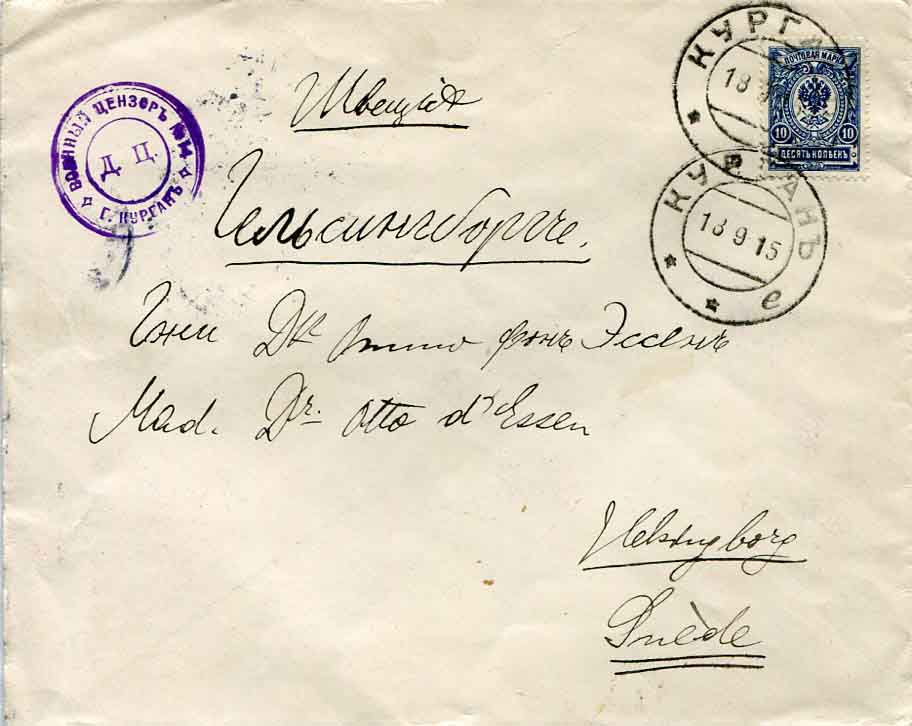 ВОЕННЫЙ ЦЕНЗОРЪ №14
Д. Ц.
Г. КУРГАНЪ
КУРГАНЪ
18
ПОЧТОВАЯ МАРКА
10 10
ДЕСЯТЬ КОПѢЕКЪ
КУРГАНЪ
18 9 15
е
Швецiя
Гельсингборгъ.
Гжи Дr Отто фонъ Эссенъ
Mad. Dr. Otto d'Essen
Helsingborg
Suède